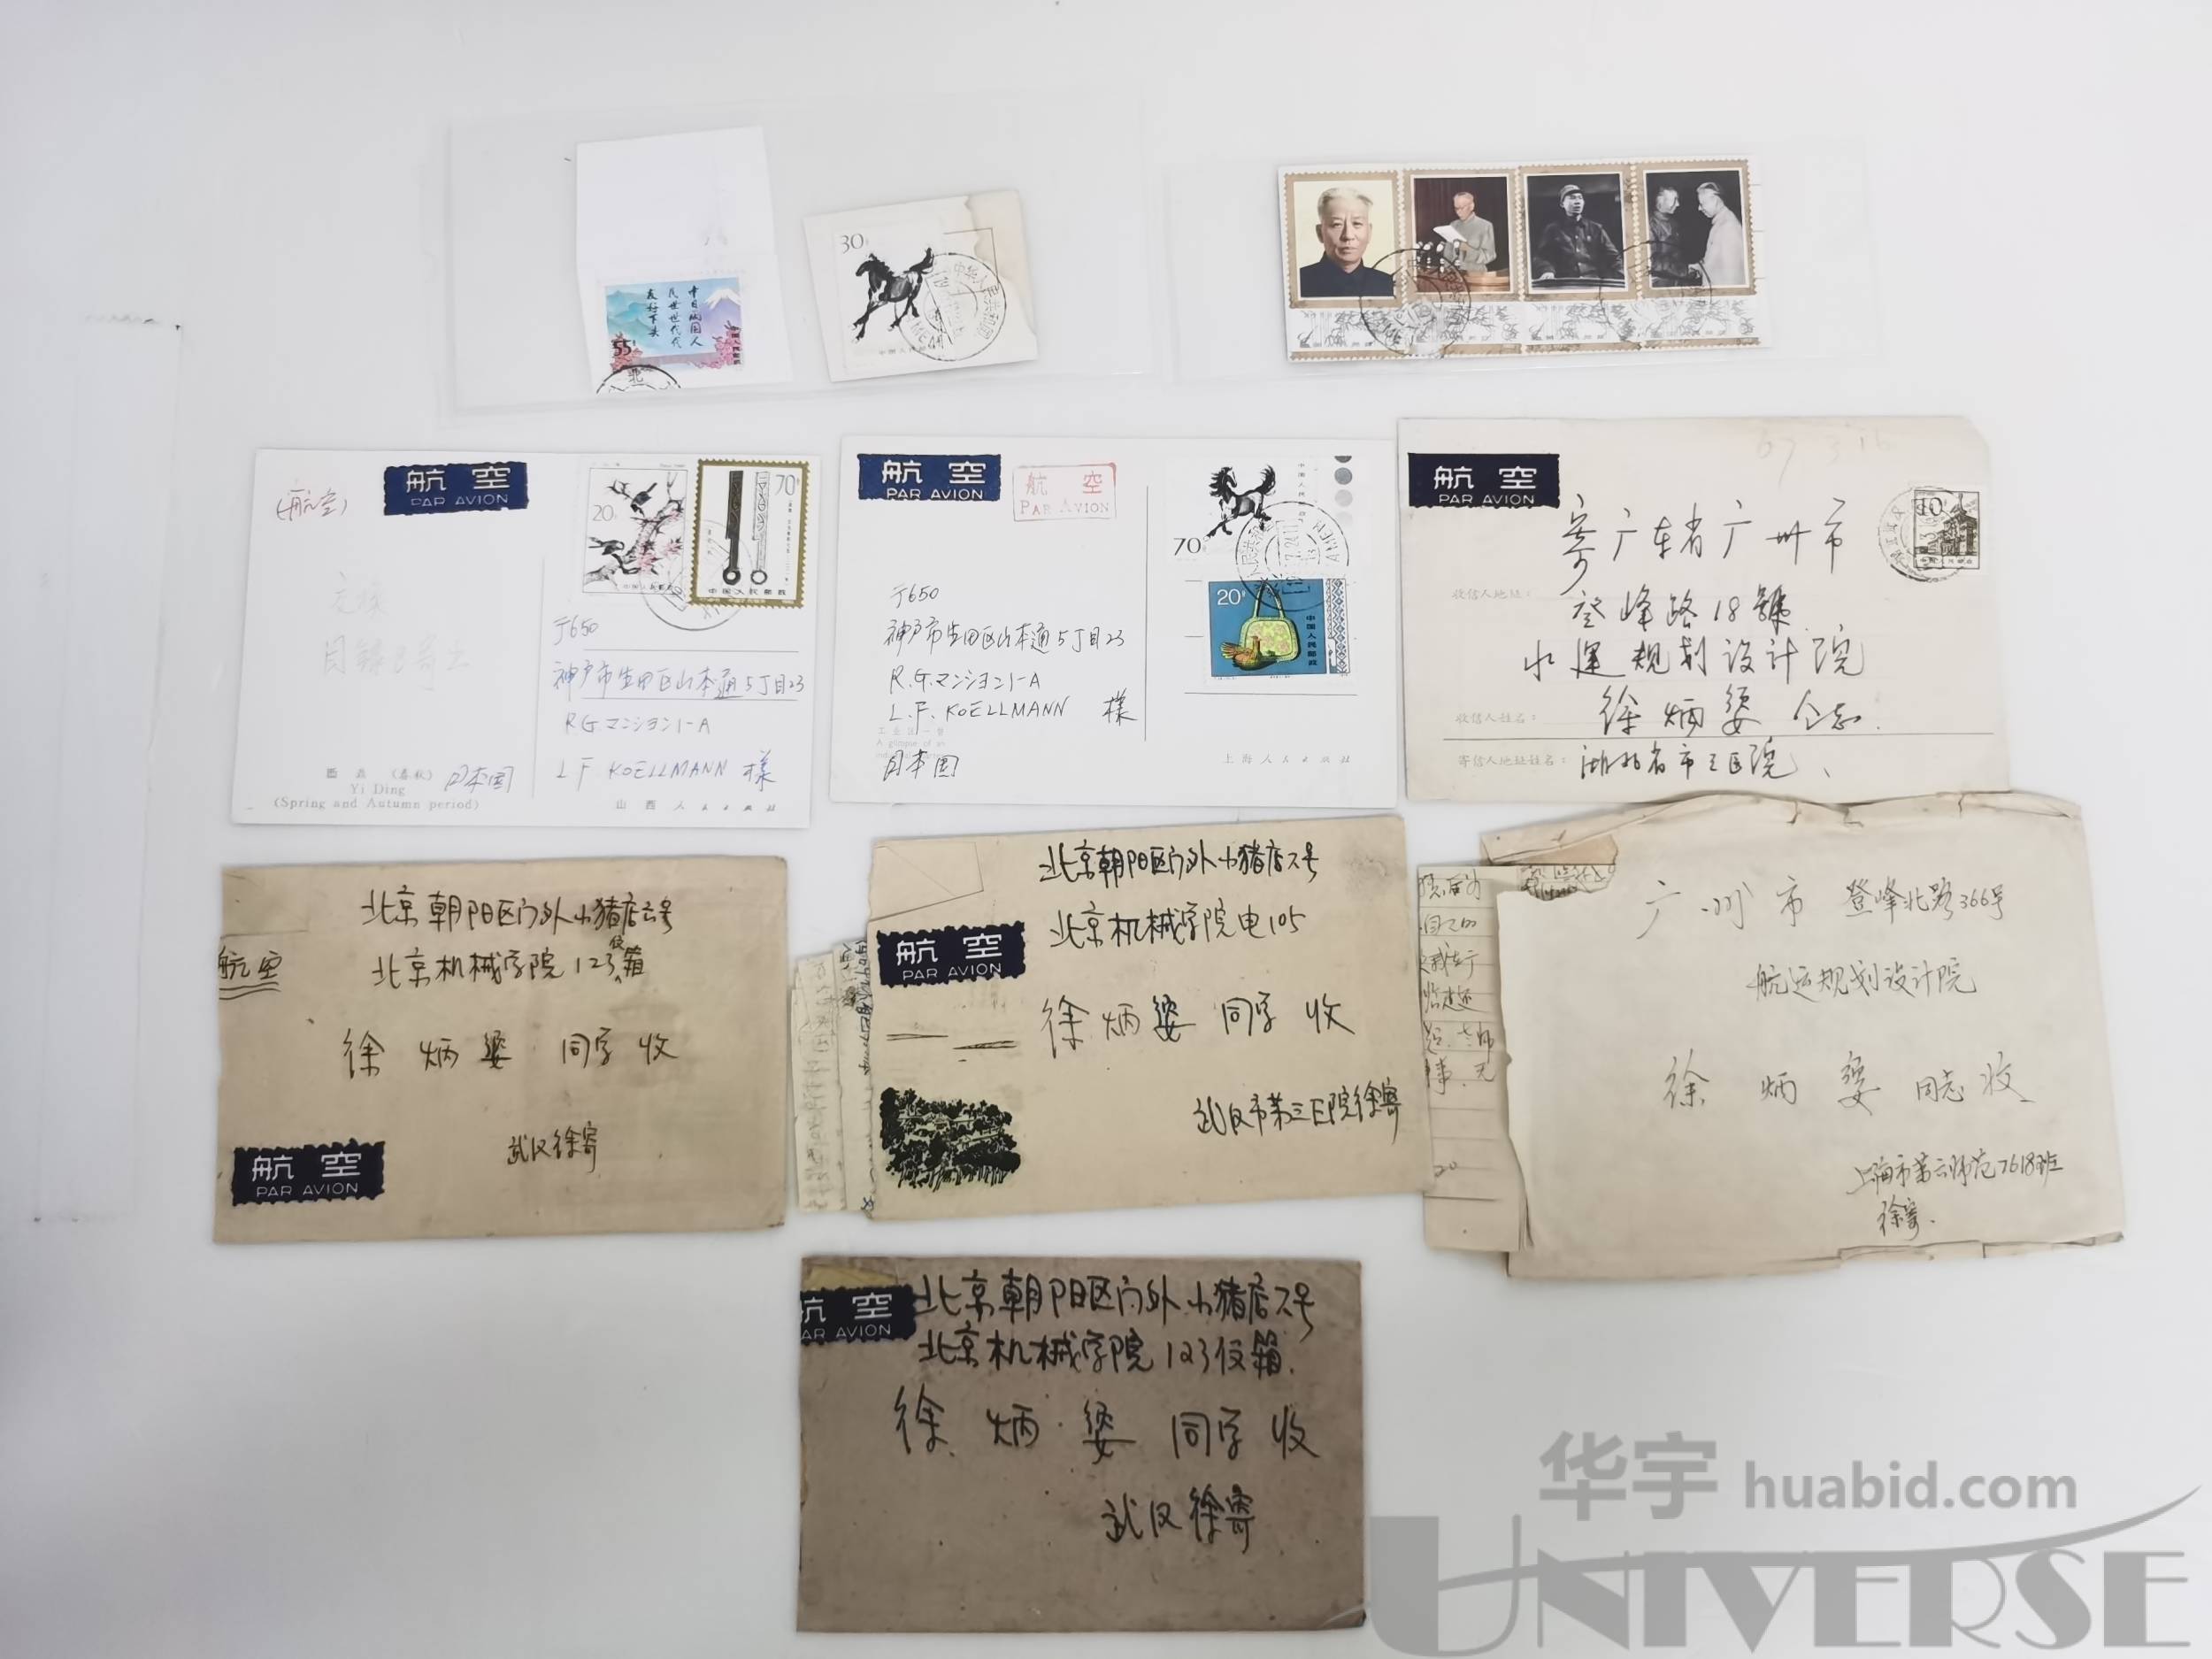 中日两国人
民世世代代
友好下去
55
中国人民邮政
30
中国人民邮政
(航空)
航 空
PAR AVION
20
中国人民邮政
70
中国人民邮政
〒650
神戸市生田区山本通5丁目23
R.G マンション1-A
L F KOELLMANN 様
日本国
(春秋)
Yi Ding
(Spring and Autumn period)
山西人民出版社
航 空
PAR AVION
航 空
PAR AVION
中国人民邮政
70
20
中国人民邮政
〒650
神戸市生田区山本通5丁目23
R.G.マンション1-A
L.F. KOELLMANN 様
日本国
A glimpse of
上海人民出版社
航 空
PAR AVION
10
中国人民邮政
寄广东省广州市
收信人地址:
登峰路18號
水運规划设计院
收信人姓名:
徐炳 同志
寄信人地址姓名:
湖北省市三医院
北京朝阳区门外小猪店六号
航空
北京机械学院123信箱
徐炳 同学收
武汉徐寄
航 空
PAR AVION
北京朝阳区门外小猪店六号
北京机械学院电105
航 空
PAR AVION
徐炳 同学 收
武汉市第三医院徐寄
广州市 登峰北路366号
航运规划设计院
徐炳 同志收
上海市第六师范7618班
徐寄.
航 空
PAR AVION
北京朝阳区门外小猪店六号
北京机械学院123信箱.
徐炳 同学收
武汉徐寄
华宇 huabid.com
UNIVERSE